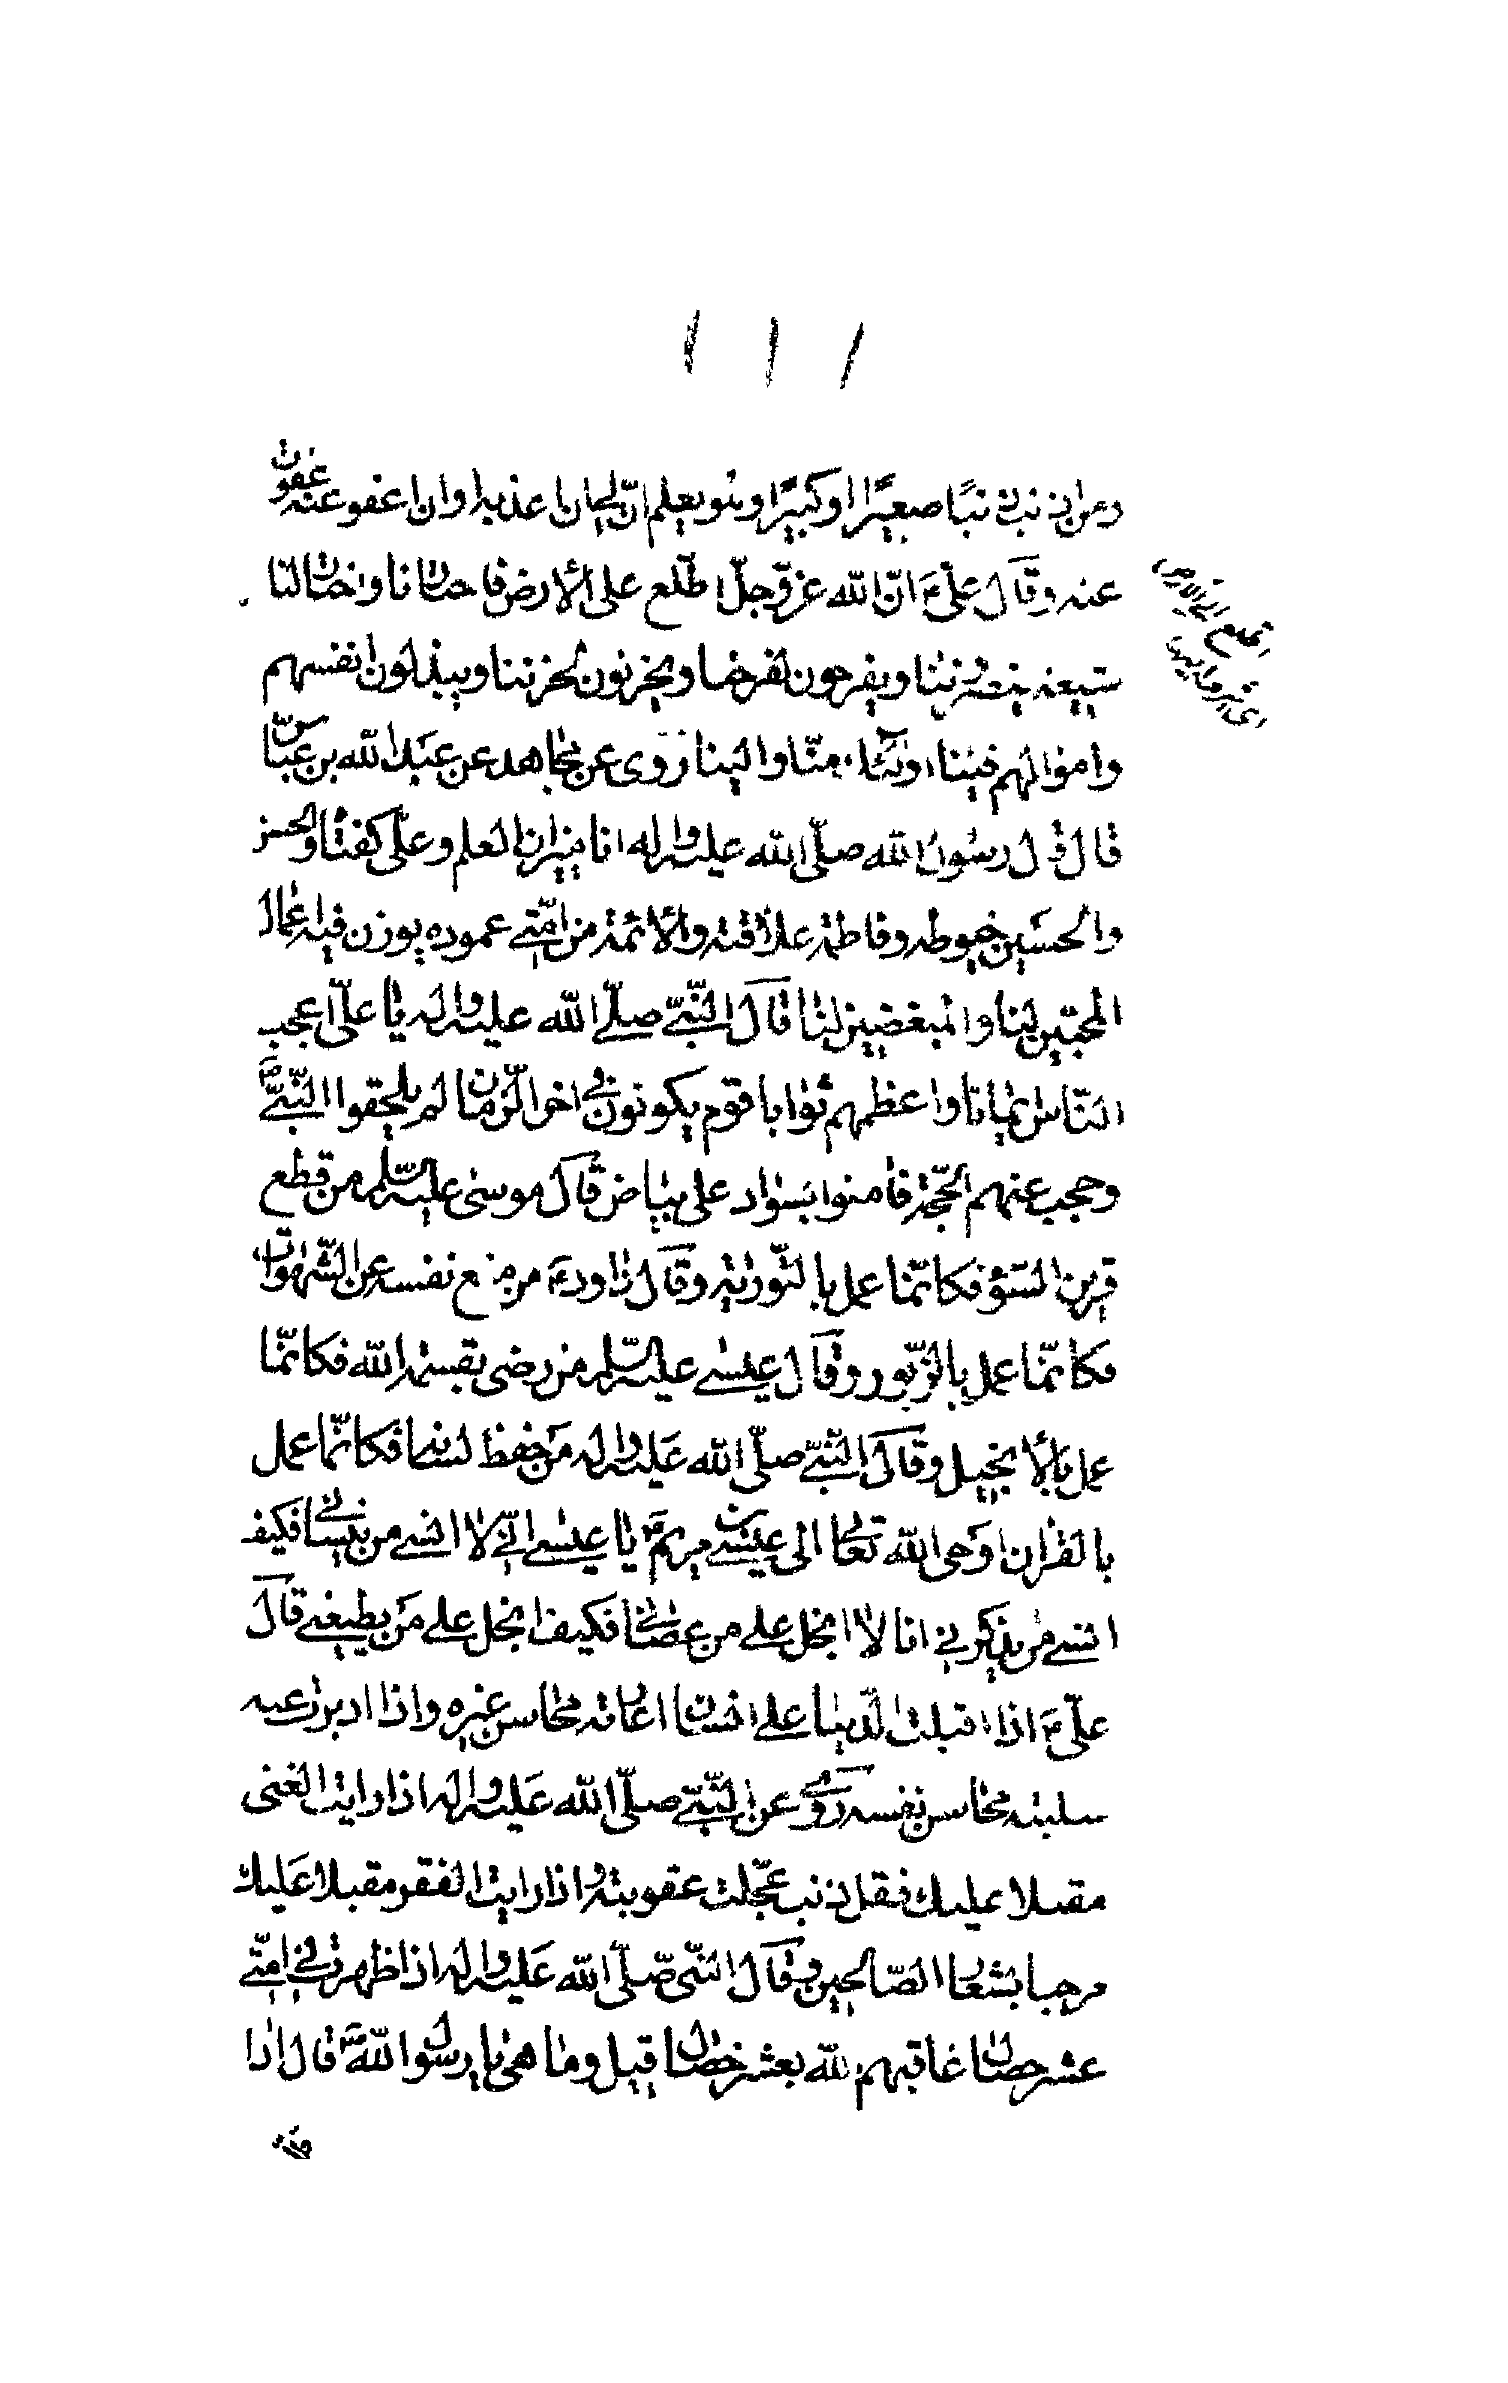 ومن اذنب ذنبا صغيرا او كبيرا وهو يعلم ان لى ان اعذبه او ان اعفو عنه عفوت
عنه وقال علىّ ع انّ الله عزّ وجلّ اطّلع على الأرض فاختارنا واختار لنا
شيعة ينصروننا ويفرحون لفرحنا ويحزنون لحزننا ويبذلون انفسهم
واموالهم فينا اولئك منّا والينا روى عن مجاهد عن عبد الله بن عبّاس
قال قال رسول الله صلّى الله عليه واله انا ميزان العلم وعلىّ كفتاه والحسن
والحسين خيوطه وفاطمة علاقته والأئمة من امّتى عموده يوزن فيه اعمال
المحبّين لنا والمبغضين لنا قال النّبىّ صلّى الله عليه واله يا علىّ اعجب
النّاس ايمانا واعظمهم ثوابا قوم يكونون فى اخر الزّمان لم يلحقوا النّبىّ ص
وحجب عنهم الحجّة فامنوا بسواد على بياض قال موسى عليه السّلم من قطع
قرين السّوء فكانّما عمل بالتّورية وقال داود ع من منع نفسه عن الشّهوات
فكانّما عمل بالزّبور وقال عيسى عليه السّلم من رضى بقسمة الله فكانّما
عمل بالأنجيل وقال النّبىّ صلّى الله عليه واله من حفظ لسانه فكانّما عمل
بالقران اوحى الله تعالى الى عيسى بن مريم ع يا عيسى انّى لا انسى من ينسانى فكيف
انسى من يذكرنى انا لا ابخل على من عصانى فكيف ابخل على من يطيعنى قال
علىّ ع اذا اقبلت الدّنيا على انسان اعارته محاسن غيره واذا ادبرت عنه
سلبته محاسن نفسه روى عن النّبىّ صلّى الله عليه واله اذا رايت الغنى
مقبلا عليك فقل ذنب عجّلت عقوبته واذا رايت الفقر مقبلا عليك
مرحبا بشعار الصّالحين وقال النّبى صلّى الله عليه واله اذا ظهرت فى امّتى
عشر خصال عاقبهم الله بعشر خصال قيل وما هى يا رسول الله ص قال اذا